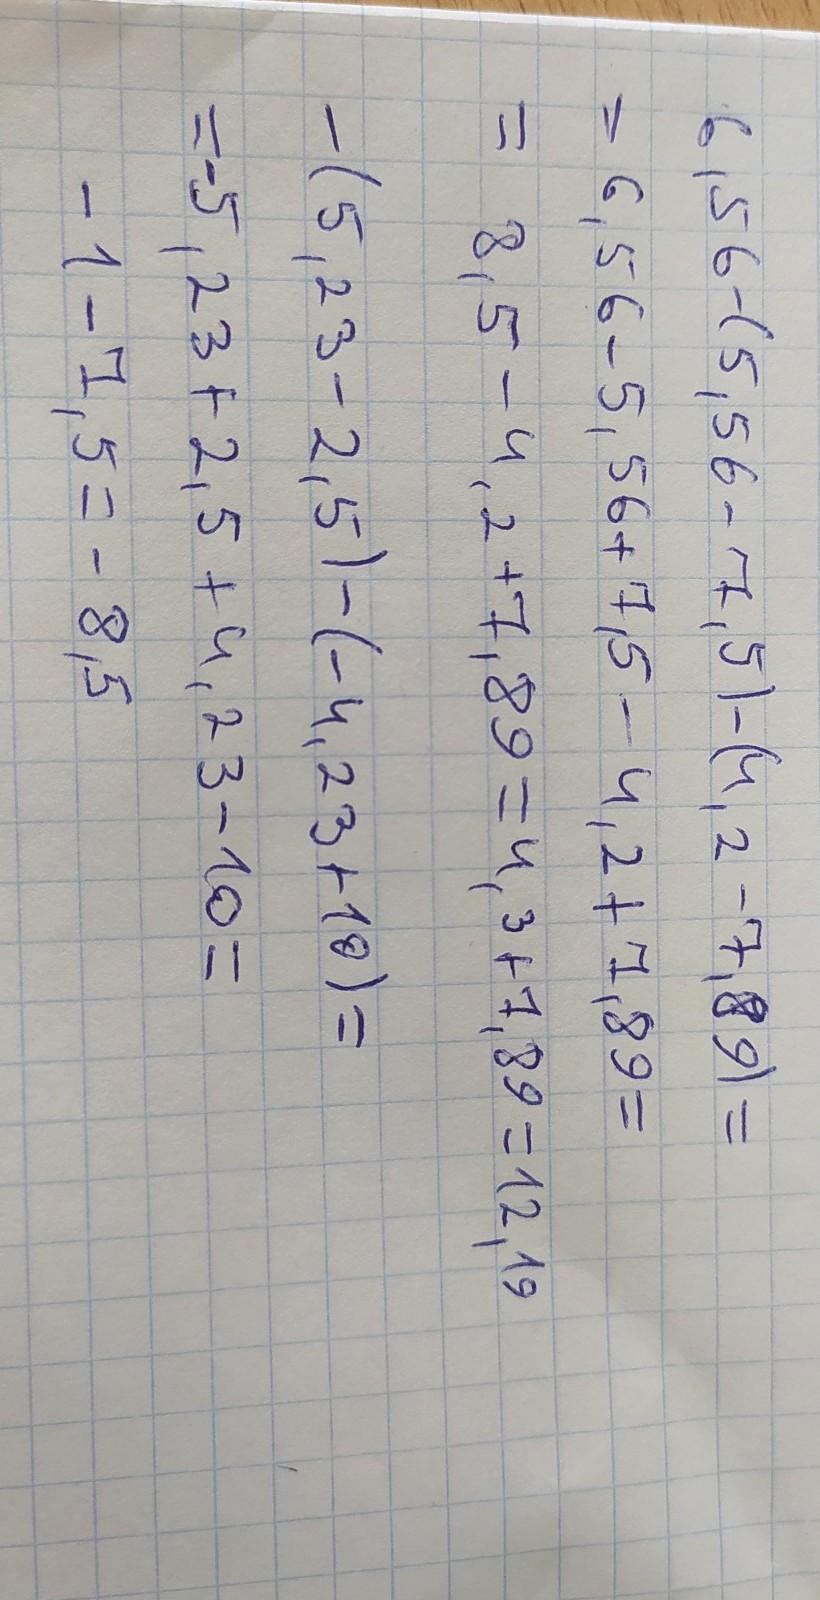 6,56-(5,56-7,5)-(4,2-7,89)=
= 6,56-5,56+7,5-4,2+7,89=
= 8,5-4,2+7,89=4,3+7,89=12,19
-(5,23-2,5)-(-4,23+10)=
=-5,23+2,5+4,23-10=
-1-7,5=-8,5